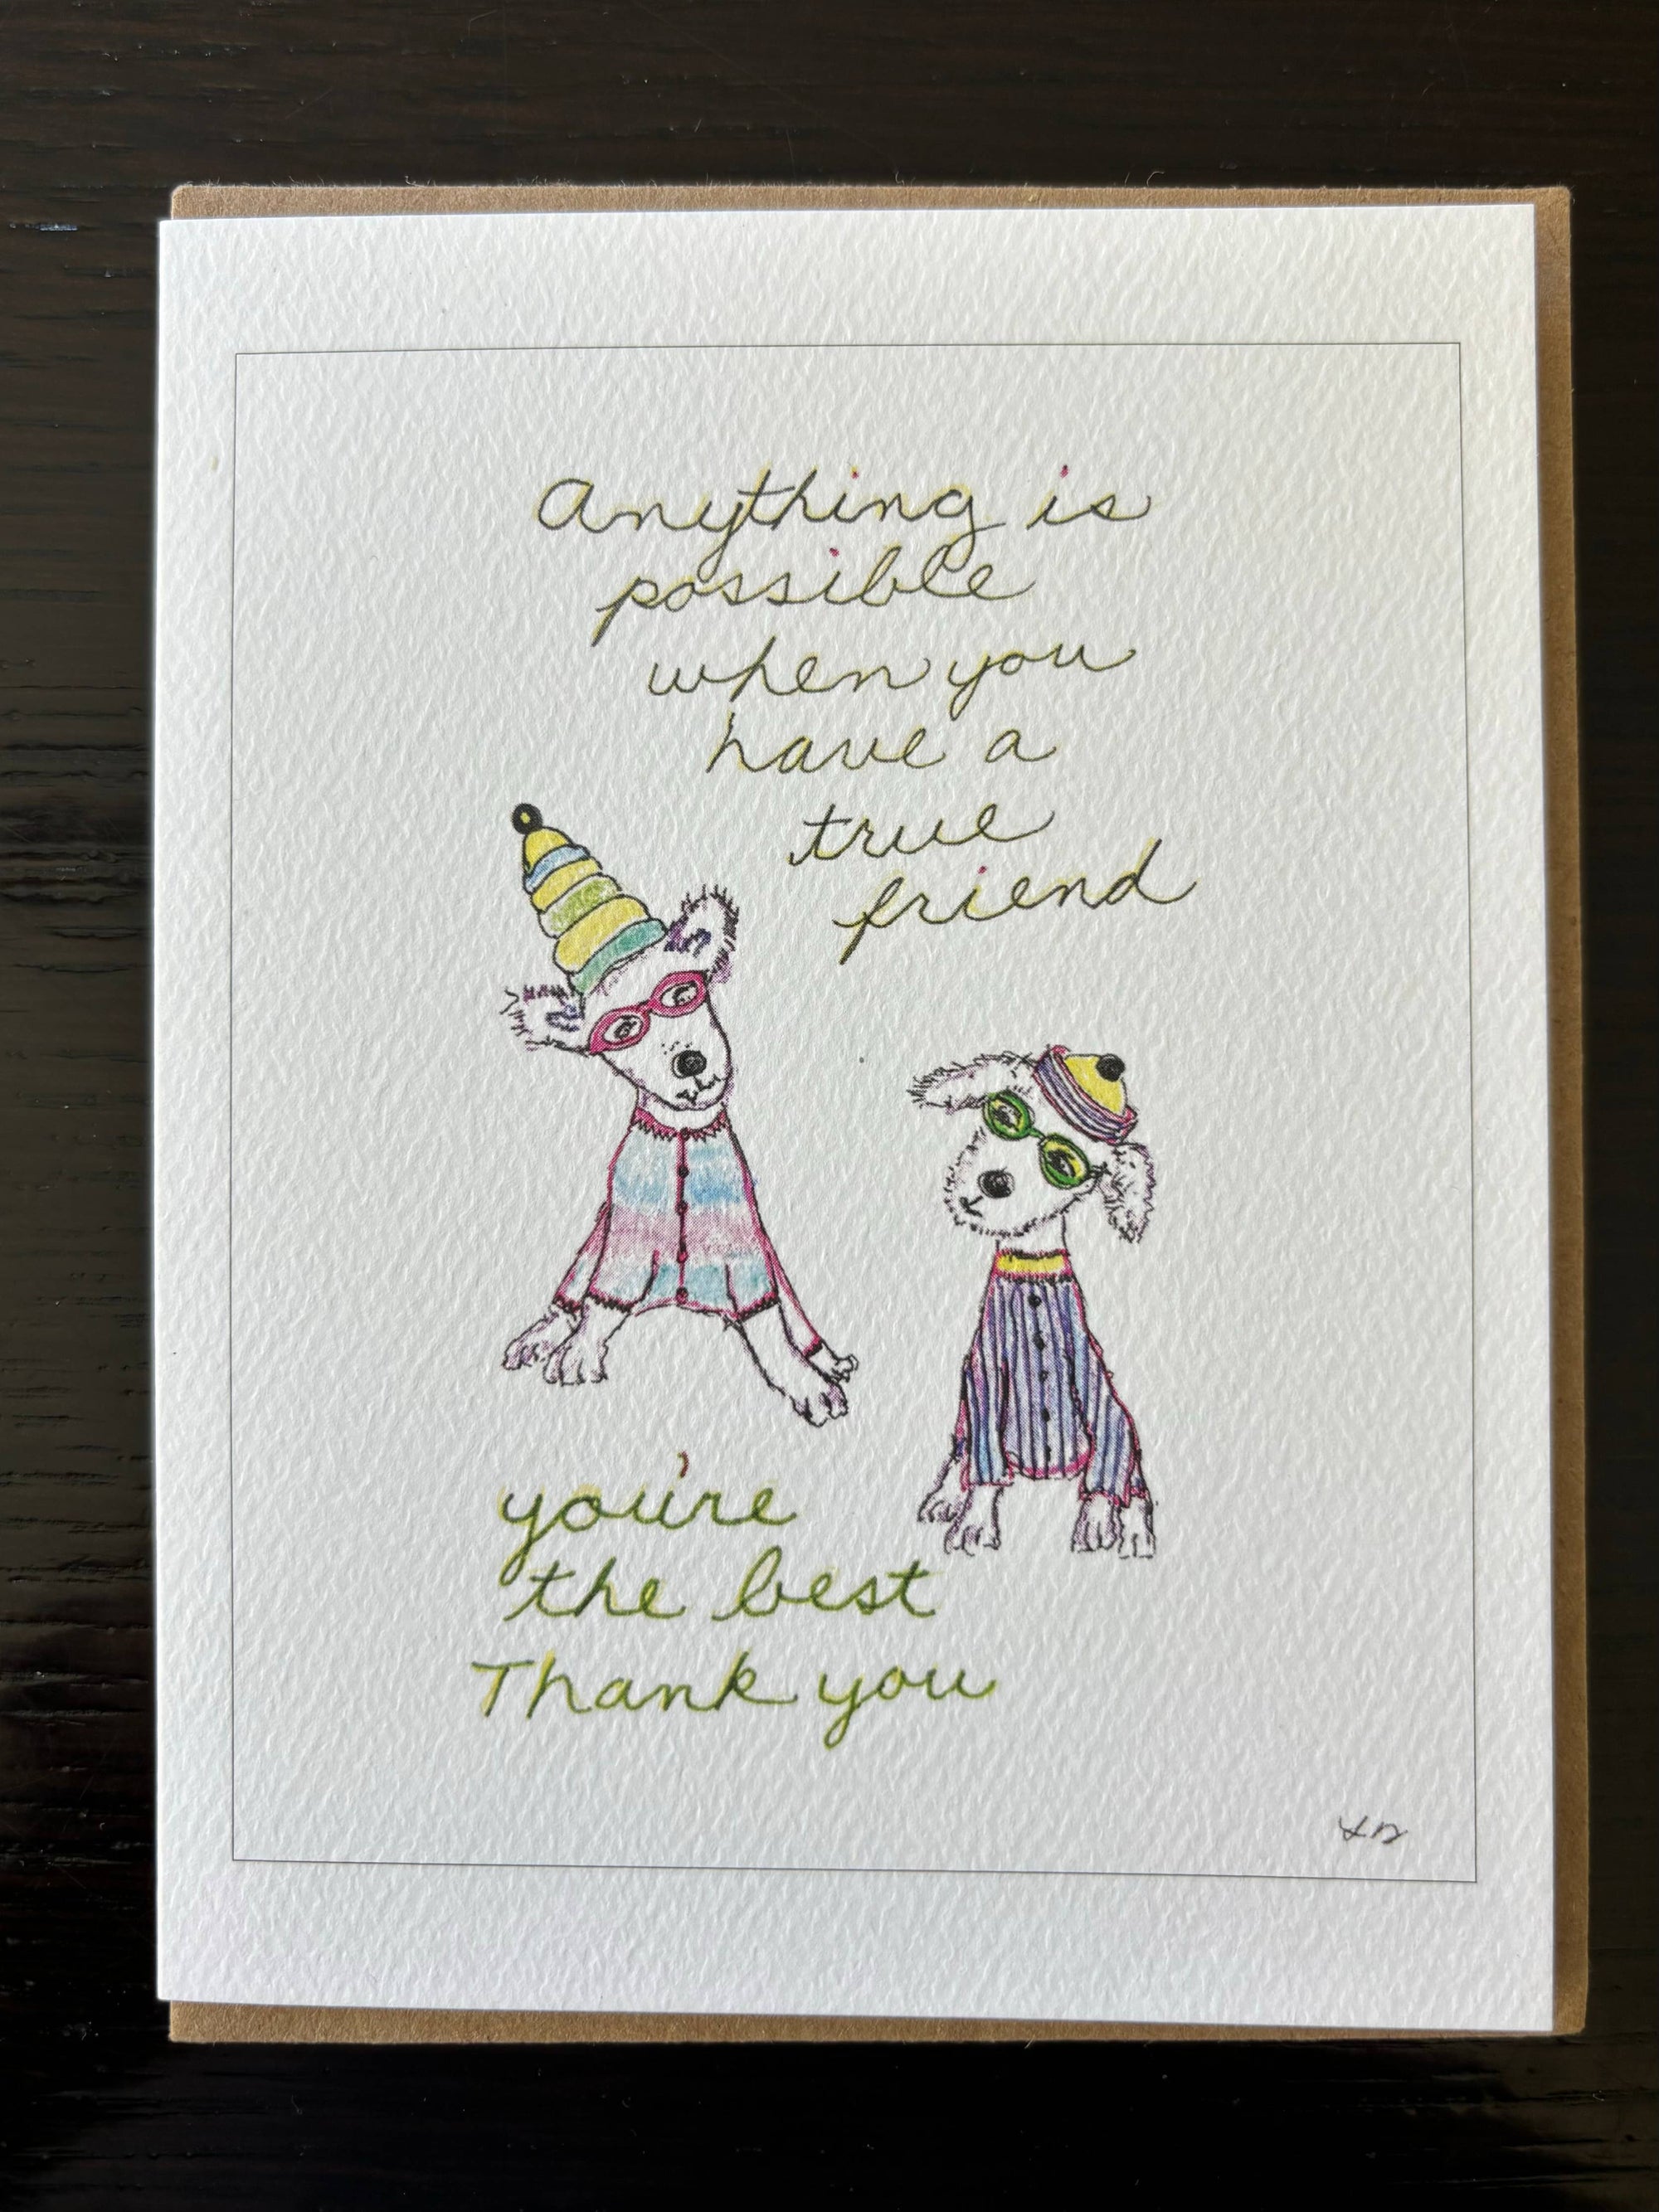 Anything is
possible
when you
have a
true
friend
you're
the best
Thank you